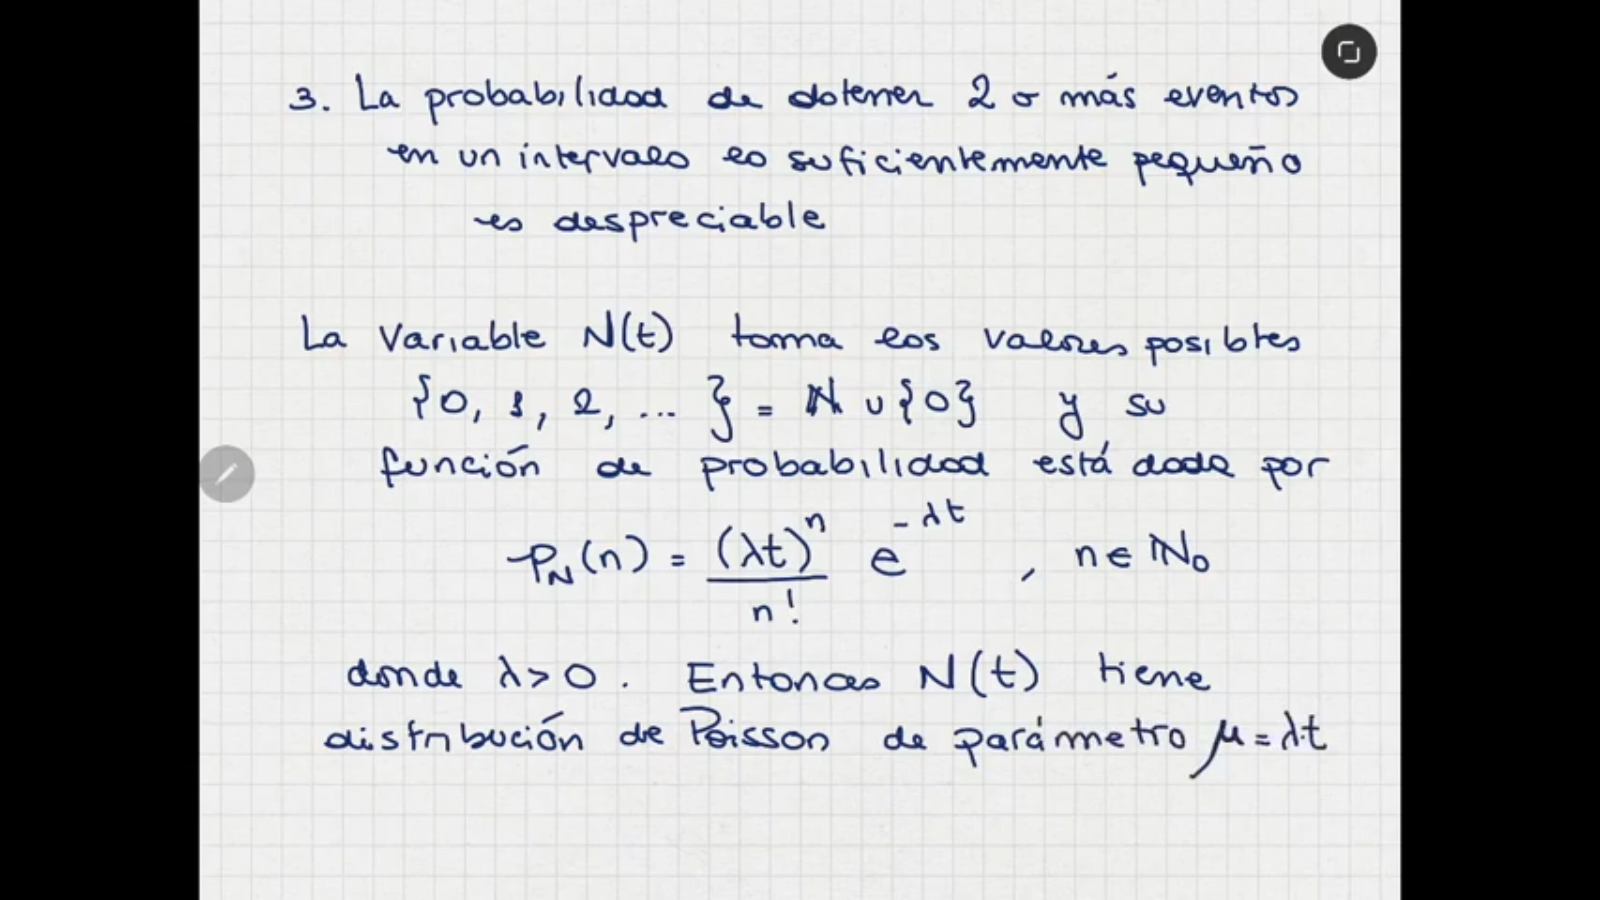 3. La probabilidad de obtener 2 o más eventos
en un intervalo lo suficientemente pequeño
es despreciable
La variable N(t) toma los valores posibles
{0, 1, 2, ... } = ℕ ∪ {0} y su
función de probabilidad está dada por
p_N(n) = (λt)^n / n! e^{-λt} , n ∈ ℕ₀
donde λ > 0. Entonces N(t) tiene
distribución de Poisson de parámetro μ = λt